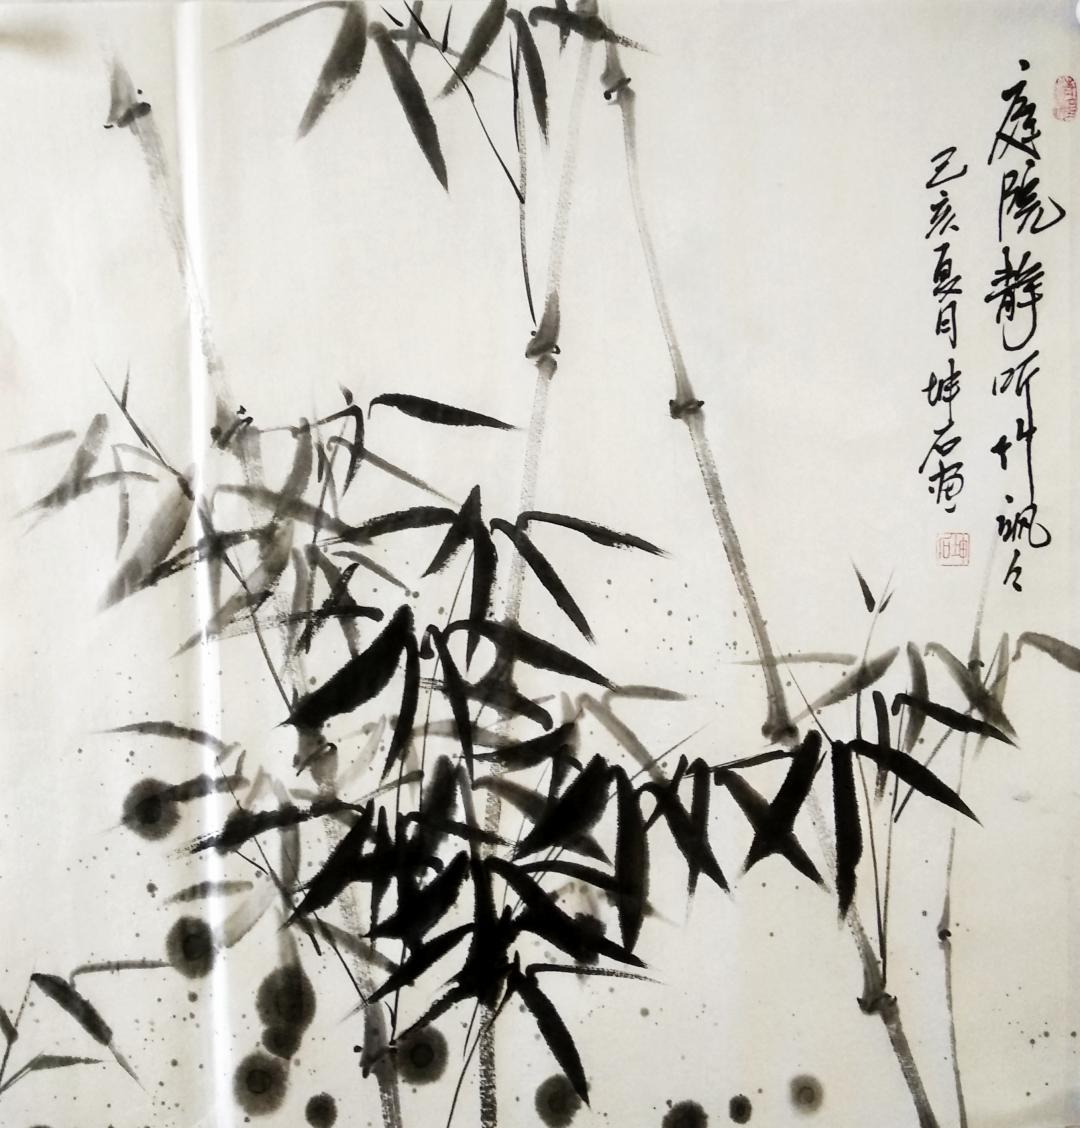 庭院静听竹飒々
己亥夏月坤石画
坤石